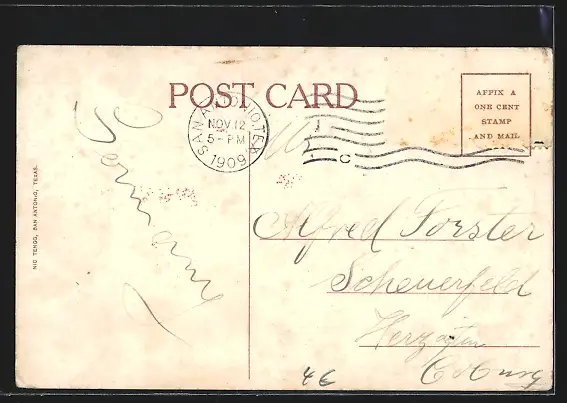 POST CARD
SAN ANTONIO, TEX.
NOV 12
5-PM
1909
C
AFFIX A
ONE CENT
STAMP
AND MAIL
NIC TENGG, SAN ANTONIO, TEXAS.
Germany
Alfred Forster
Scheuerfeld
Herzogtum
Coburg
4€